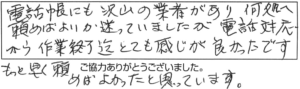 電話帳にも沢山の業者があり何処へ
頼めばよいか迷っていましたが電話対応
から作業終了迄とても感じが良かったです
もっと早く頼
ご協力ありがとうございました。
めばよかったと思っています。